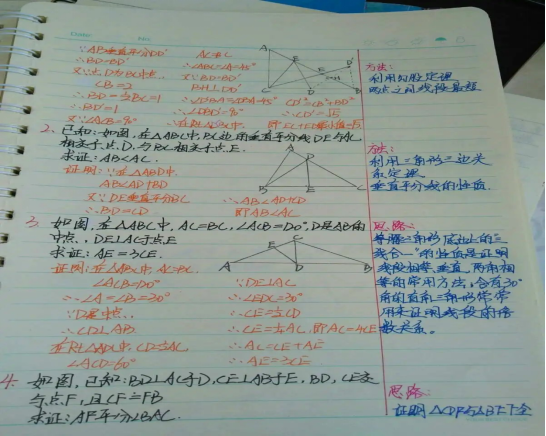 ∵AB垂直平分DD'
AC=BC
∴BD=BD'
∴∠ABC=∠A=45°
又∵D为BC中点,
又∵BD=BD'
CB=2
BH⊥DD'
∴BD=½BC=1
∴BD'=1
∴∠D'BD=90°
又∠ACB=90°
方法:
利用勾股定理
两点之间线段最短
2. 已知:如图,在△ABC中,BC边的垂直平分线DE与AC
相交于点D,与BC相交于点E.
求证:AB<AC.
证明:∵在△ABD中,
AB<AD+BD
又∵DE垂直平分BC
∴AB<AD+CD
∴BD=CD
即AB<AC
方法:
利用三角形三边关
系定理
垂直平分线的性质.
3. 如图,在△ABC中,AC=BC,∠ACB=120°,D是AB的
中点,DE⊥AC于点E
求证:AE=3CE.
证明:在△ABC中,AC=BC.
∠ACB=120°
∵DE⊥AC
∴∠A=∠B=30°
∴∠EDC=30°
∵D是中点.
∴CE=½CD
∴CD⊥AB
∴CE=¼AC,即AC=4CE
在Rt△ADC中,CD=½AC,
∴AC=CE+AE
∠ACD=60°
∴AE=3CE
思路:
等腰三角形底边上的"三
线合一"的性质是证明
线段相等、垂直、两角相
等的常用方法,含有30°
角的直角三角形常常
用来证明线段的倍
数关系。
4. 如图,已知:BD⊥AC于D,CE⊥AB于E,BD,CE交
与点F,且CF=FB
求证:AF平分∠BAC.
思路: